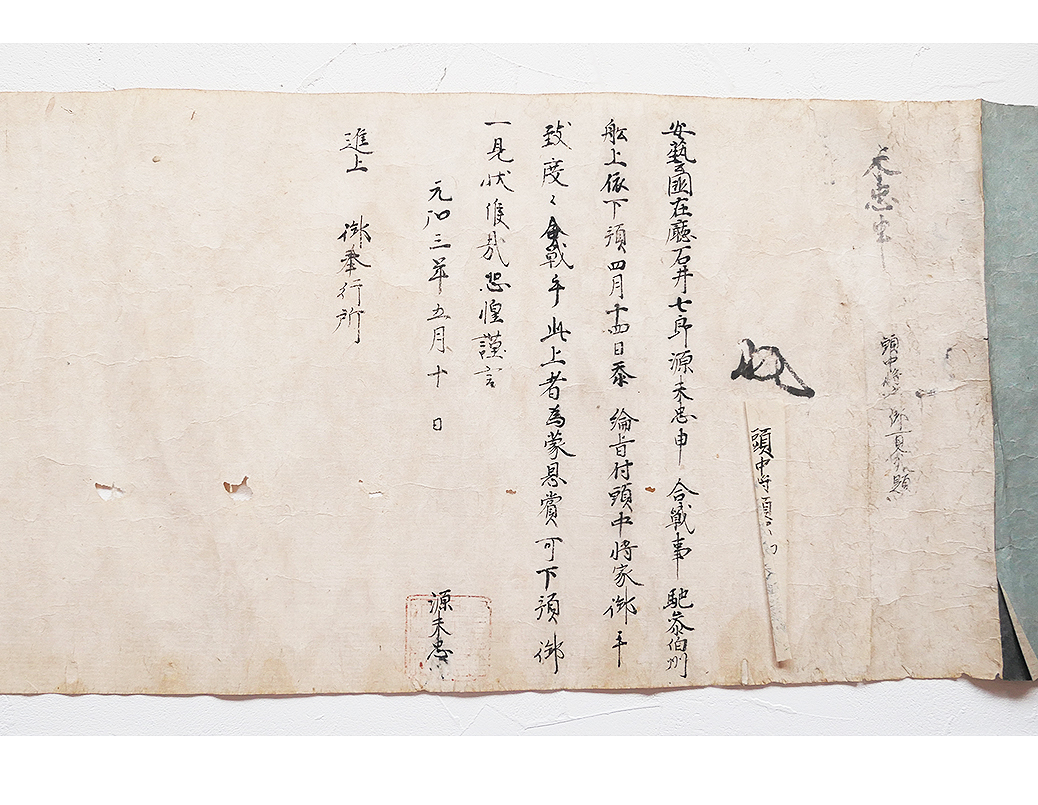 末忠申
頭中将 御一見
頭中将
安藝國在廳石井七郎源末忠申 合戦事 馳参伯州
舩上依下預四月十四日忝 綸旨付頭中将家御手
致度々合戦乎此上者為蒙恩賞可下預 御
一見状候哉恐惶謹言
元弘三年五月十 日
源末忠
進上 御奉行所